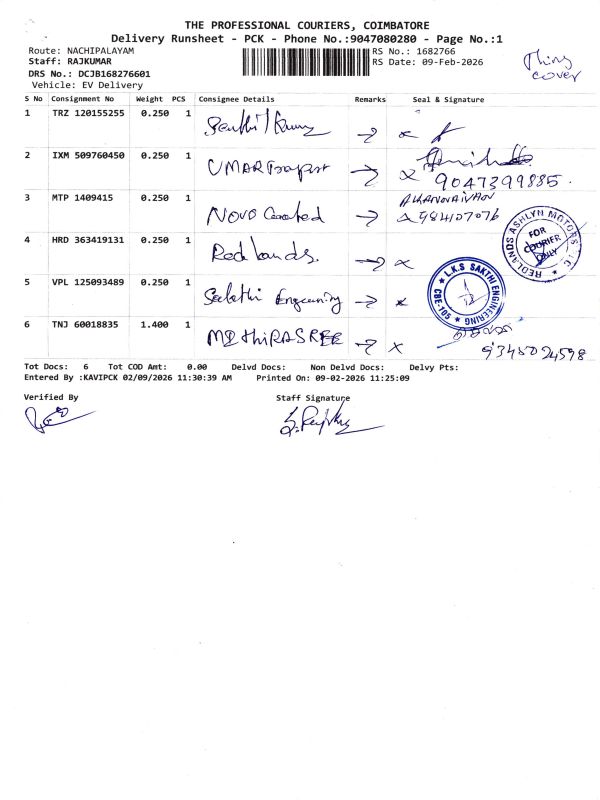 THE PROFESSIONAL COURIERS, COIMBATORE
Delivery Runsheet - PCK - Phone No.:9047080280 - Page No.:1
Route: NACHIPALAYAM
RS No.: 1682766
Staff: RAJKUMAR
RS Date: 09-Feb-2026
DRS No.: DCJB168276601
Vehicle: EV Delivery
cover
S No Consignment No Weight PCS Consignee Details Remarks Seal & Signature
1 TRZ 120155255 0.250 1
2 IXM 509760450 0.250 1 UMAR
9047399885.
3 MTP 1409415 0.250 1 Novo
4 HRD 363419131 0.250 1 Redlands.
REDLANDS ASHLYN MOTORS
FOR COURIER ONLY
5 VPL 125093489 0.250 1 Sakthi Engineering
L.K.S SAKTHI ENGINEERING
CBE-105
6 TNJ 60018835 1.400 1 MITHIRASREE
9345024598
Tot Docs: 6 Tot COD Amt: 0.00 Delvd Docs: Non Delvd Docs: Delvy Pts:
Entered By :KAVIPCK 02/09/2026 11:30:39 AM Printed On: 09-02-2026 11:25:09
Verified By
Staff Signature